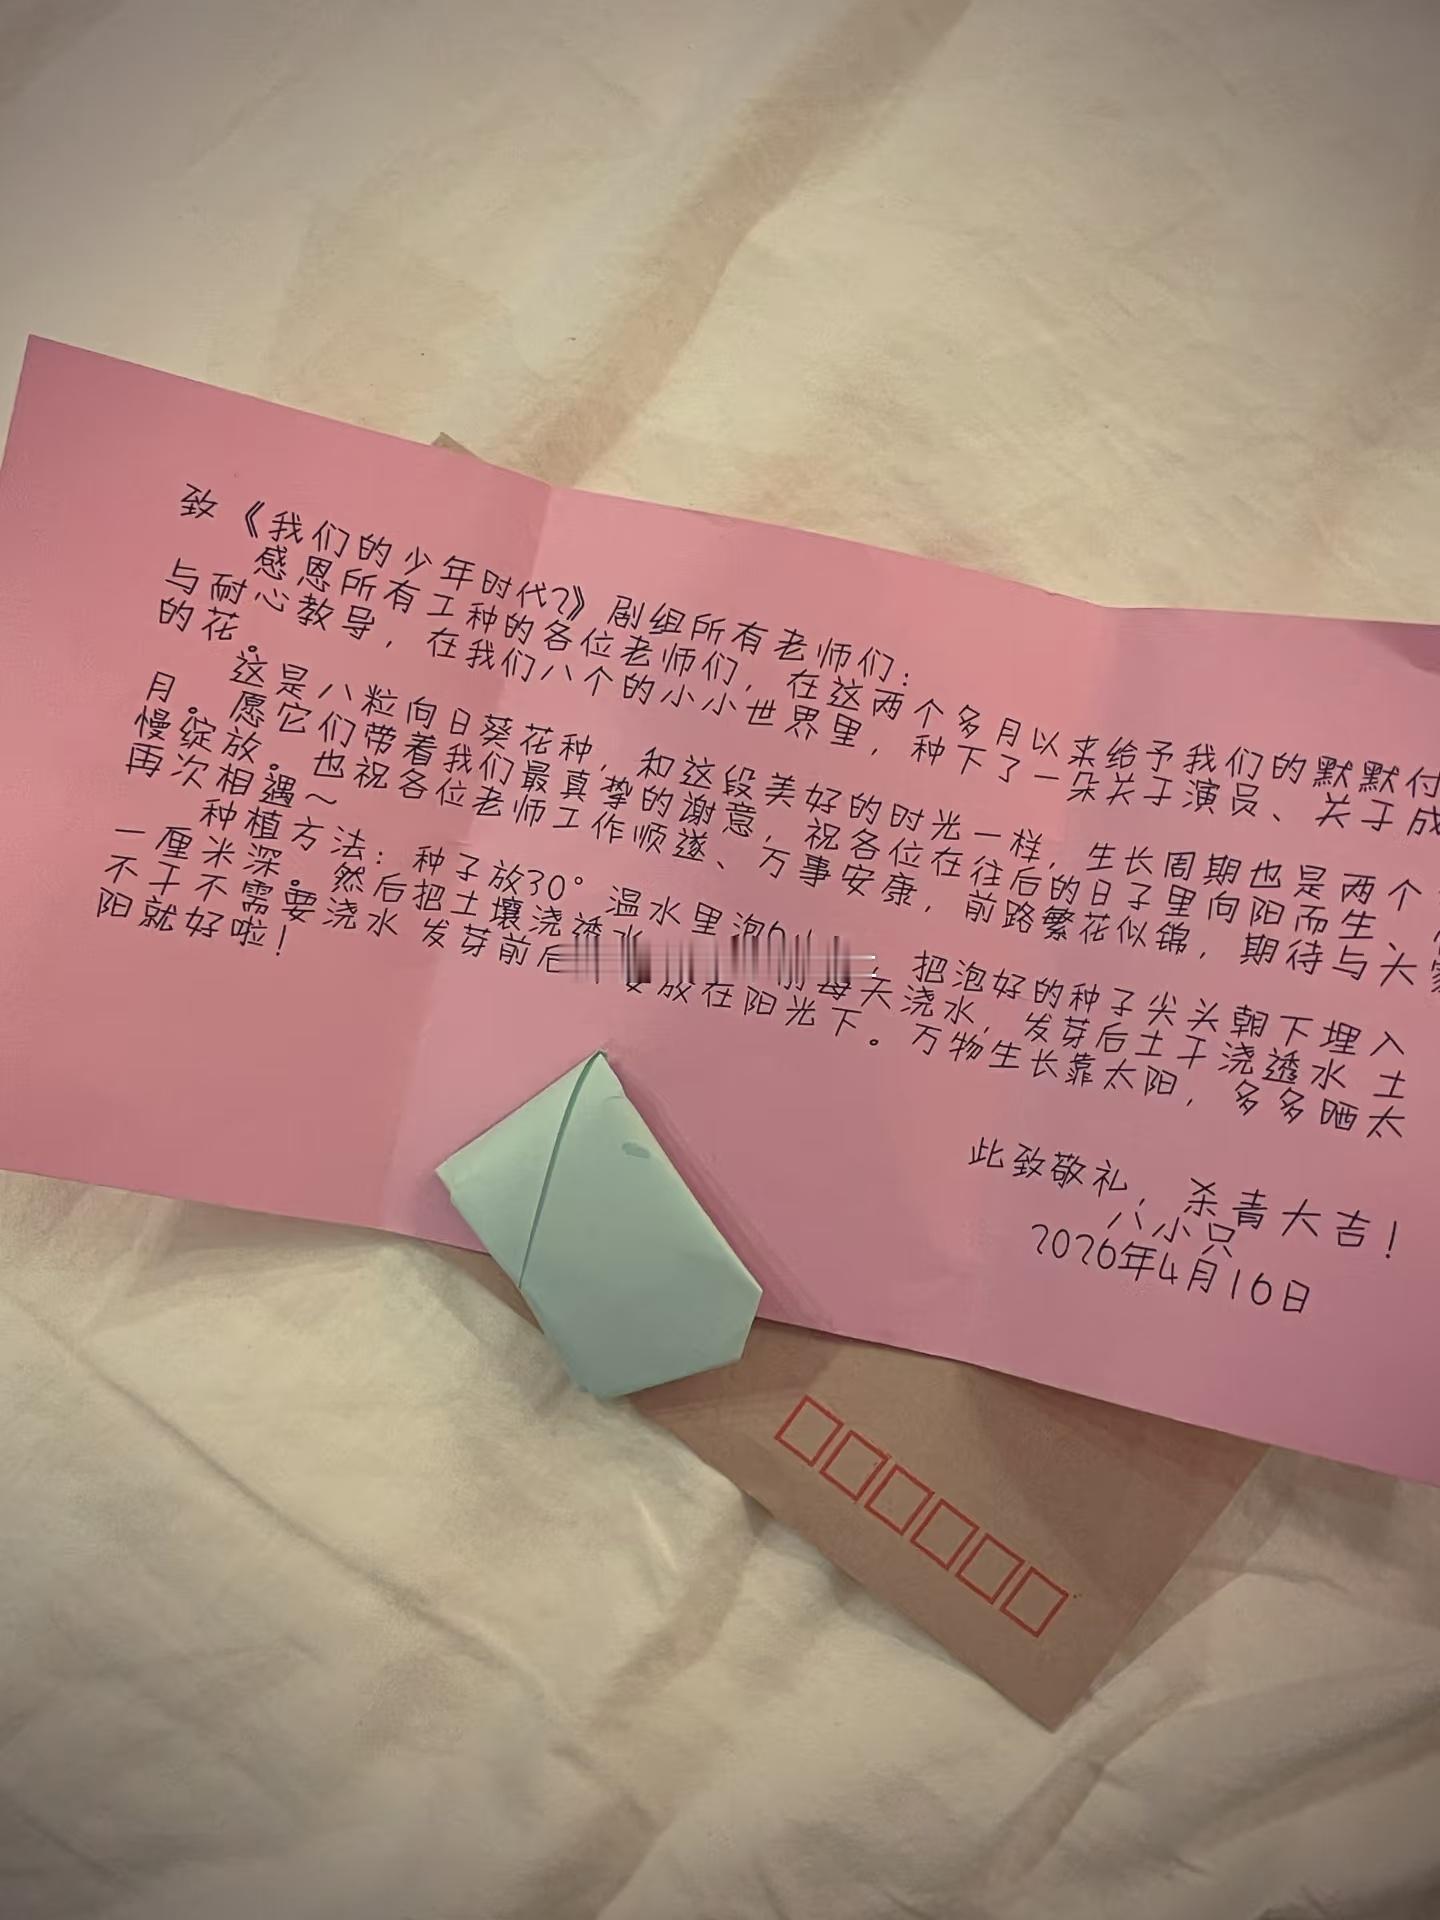 致《我们的少年时代2》剧组所有老师们：
感恩所有工种的各位老师们，在这两个多月以来给予我们的默默付
与耐心教导，在我们八个的小小世界里，种下了一朵关于演员、关于成
的花。
这是八粒向日葵花种，和这段美好的时光一样，生长周期也是两个
月。愿它们带着我们最真挚的谢意，祝各位在往后的日子里向阳而生、
慢绽放。也祝各位老师工作顺遂、万事安康，前路繁花似锦，期待与大家
再次相遇～
种植方法：种子放30°温水里泡6小，把泡好的种子尖头朝下埋入
一厘米深。然后把土壤浇透水 前每天浇水，发芽后土干浇透水 土
不干不需要浇水 发芽前后 要放在阳光下。万物生长靠太阳，多多晒太
阳就好啦！
此致敬礼，杀青大吉！
八小只
2026年4月16日